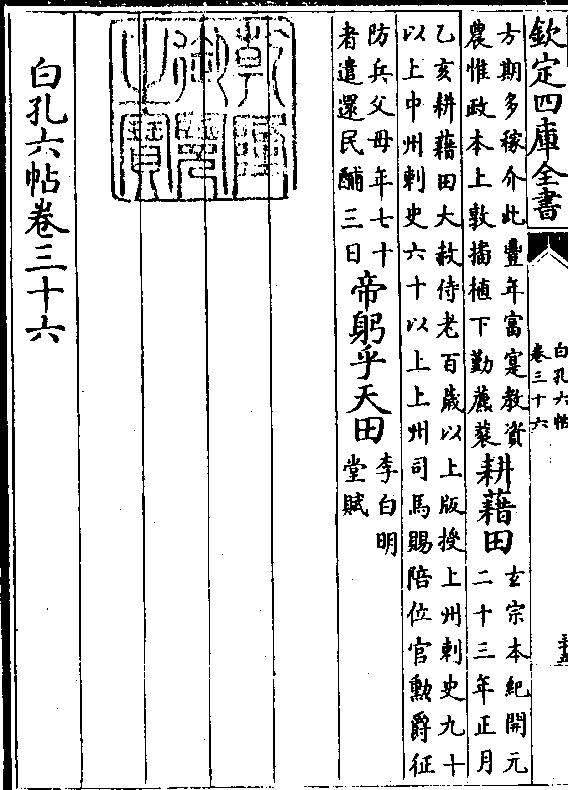 欽定四庫全書
白孔六帖
卷三十六
方期多稼介此豐年富寔教資
農惟政本上敦播植下勤藨蓘
耕藉田
玄宗本紀開元
二十三年正月
乙亥耕藉田大赦侍老百歲以上版授上州刺史九十
以上中州刺史六十以上上州司馬賜陪位官勲爵征
防兵父母年七十
者遣還民酺三日
帝躬乎天田
李白明
堂賦
乾隆御覽之寶
白孔六帖卷三十六